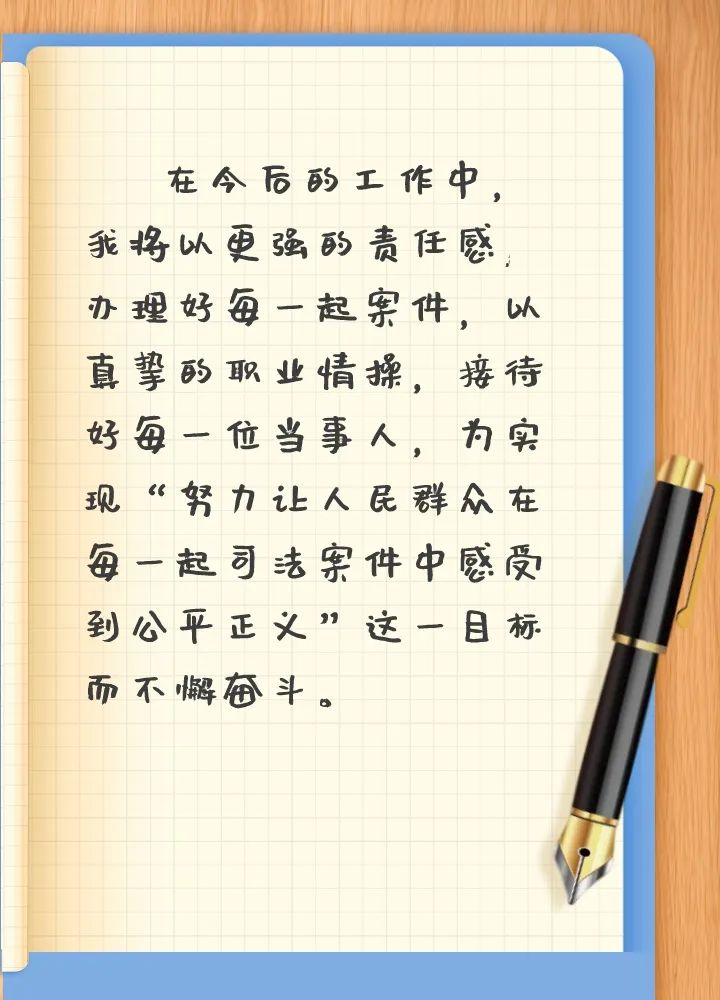 在今后的工作中，
我将以更强的责任感，
办理好每一起案件，以
真挚的职业情操，接待
好每一位当事人，为实
现“努力让人民群众在
每一起司法案件中感受
到公平正义”这一目标
而不懈奋斗。